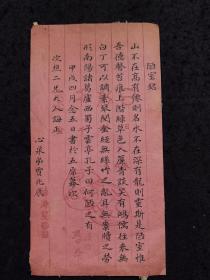 陋室銘
山不在高有僊則名水不在深有龍則靈斯是陋室惟
吾德馨苔痕上階綠草色入簾青談笑有鴻儒往來無
白丁可以調素琴閱金經無絲竹之亂耳無案牘之勞
形南陽諸葛廬西蜀子雲亭孔子曰何陋之有
甲戌四月念五日書於五原
次垣二兄大人誨正